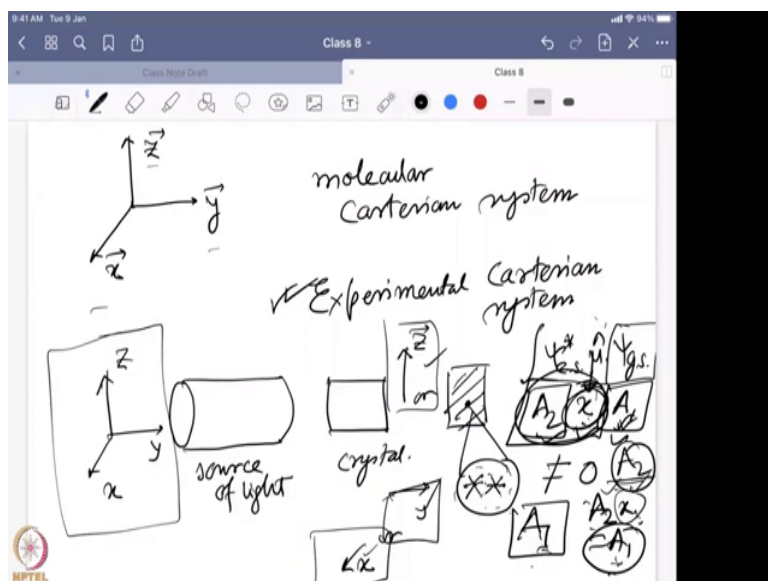 9:41 AM Tue 9 Jan
94%
Class 8
Class Note Draft
Class 8
z
y
x
molecular
Carterian system
Experimental Carterian
system
z
y
x
source
of light
crystal.
z
or
y
or
x
ψ*e.s. μ̂ ψg.s.
A2 x A1
≠ 0 A2
A1
A2 x
A1
NPTEL